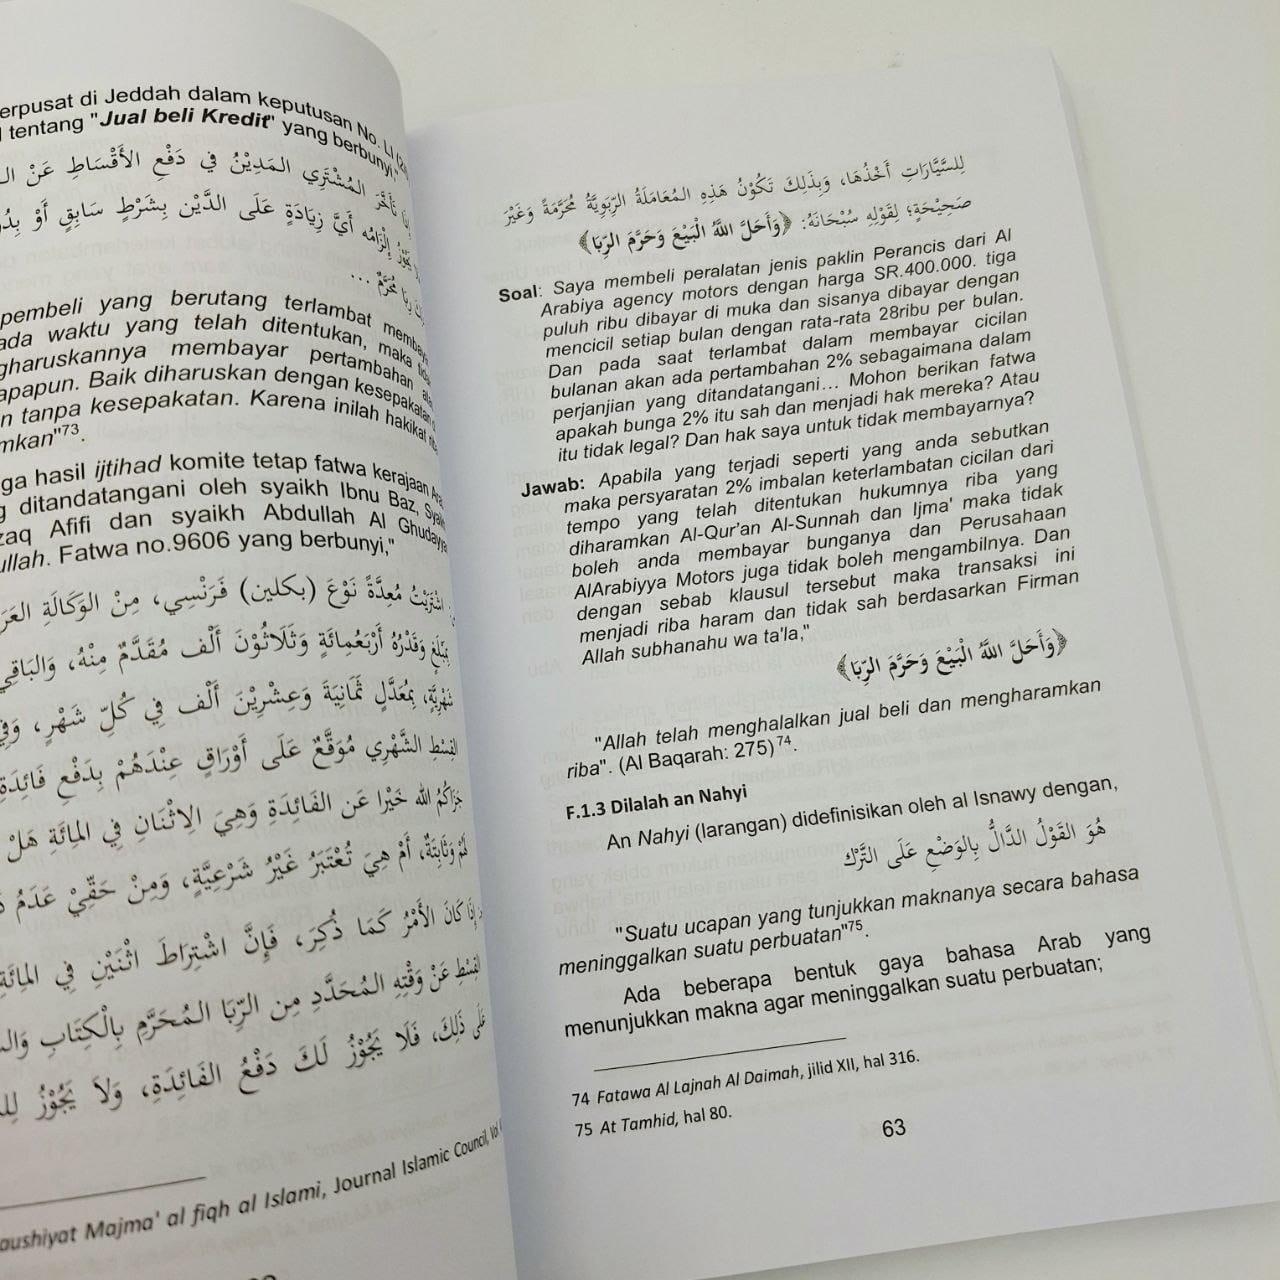 erpusat di Jeddah dalam keputusan No. LI
tentang "Jual beli Kredit" yang berbunyi,"
تَأَخَّرَ المُشْتَرِي المَدِيْنُ فِي دَفْعِ الأَقْسَاطِ عَنْ
يَجُوْزُ إِلْزَامُه أَيَّ زِيَادَةٍ عَلَى الدَّيْنِ بِشَرْطٍ سَابِقٍ أَوْ
رِبَا مُحَرَّمٌ ...
pembeli yang berutang terlambat
ada waktu yang telah ditentukan, maka
gharuskannya membayar pertambahan
apapun. Baik diharuskan dengan kesepakatan
n tanpa kesepakatan. Karena inilah hakikat
mkan"73.
ga hasil ijtihad komite tetap fatwa kerajaan
g ditandatangani oleh syaikh Ibnu Baz,
zaq Afifi dan syaikh Abdullah Al Ghudayya
ullah. Fatwa no.9606 yang berbunyi,"
اشْتَرَيْتُ مُعِدَّةً نَوْعَ (بكلين) فَرَنْسِي، مِنْ الوَكَالَةِ
بِمَبْلَغٍ وَقَدْرُهُ أَرْبَعُمِائَةٍ وَثَلَاثُوْنَ أَلْف مُقَدَّمٌ مِنْهُ، وَالبَاقِي
شَهْرِيَّةٍ، بِمُعَدَّلٍ ثَمَانِيَةَ وَعِشْرِيْنَ أَلْف فِي كُلِّ شَهْرٍ،
القِسْطِ الشَّهْرِي مُوَقَّعٌ عَلَى أَوْرَاقٍ عِنْدَهُمْ بِدَفْعِ فَائِدَةٍ
جَزَاكُمُ الله خَيْرا عَن الفَائِدَةِ وَهِيَ الاِثْنَانِ فِي المِائَةِ هَلْ
لَهُمْ وَثَابِتَةٌ، أَمْ هِيَ تُعْتَبَرُ غَيْرُ شَرْعِيَّةٍ، وَمِنْ حَقِّيْ عَدَمُ
إِذَا كَانَ الأَمْرُ كَمَا ذُكِرَ، فَإِنَّ اشْتِرَاطَ اثْنَيْنِ فِي المِائَةِ
القِسْطِ عَنْ وَقْتِهِ المُحَدَّدِ مِن الرِّبَا المُحَرَّمِ بِالْكِتَابِ
عَلَى ذَلِكَ، فَلَا يَجُوْزُ لَكَ دَفْعُ الفَائِدَةِ، وَلاَ يَجُوْزُ
aushiyat Majma' al fiqh al Islami, Journal Islamic Council,
لِلسَّيَّارَاتِ أَخْذُهَا، وَبِذَلِكَ تَكُوْنُ هَذِهِ المُعَامَلَةُ الرِّبَوِيَّةُ مُحَرَّمَةً وَغَيْرَ
صَحِيْحَةٍ؛ لِقَوْلِهِ سُبْحَانَهُ: ﴿وَأَحَلَّ اللَّهُ الْبَيْعَ وَحَرَّمَ الرِّبَا﴾
Soal: Saya membeli peralatan jenis paklin Perancis dari Al
Arabiya agency motors dengan harga SR.400.000. tiga
puluh ribu dibayar di muka dan sisanya dibayar dengan
mencicil setiap bulan dengan rata-rata 28ribu per bulan.
Dan pada saat terlambat dalam membayar cicilan
bulanan akan ada pertambahan 2% sebagaimana dalam
perjanjian yang ditandatangani... Mohon berikan fatwa
apakah bunga 2% itu sah dan menjadi hak mereka? Atau
itu tidak legal? Dan hak saya untuk tidak membayarnya?
Jawab: Apabila yang terjadi seperti yang anda sebutkan
maka persyaratan 2% imbalan keterlambatan cicilan dari
tempo yang telah ditentukan hukumnya riba yang
diharamkan Al-Qur'an Al-Sunnah dan Ijma' maka tidak
boleh anda membayar bunganya dan Perusahaan
AlArabiyya Motors juga tidak boleh mengambilnya. Dan
dengan sebab klausul tersebut maka transaksi ini
menjadi riba haram dan tidak sah berdasarkan Firman
Allah subhanahu wa ta'la,"
﴿وَأَحَلَّ اللَّهُ الْبَيْعَ وَحَرَّمَ الرِّبَا﴾
"Allah telah menghalalkan jual beli dan mengharamkan
riba". (Al Baqarah: 275)74.
F.1.3 Dilalah an Nahyi
An Nahyi (larangan) didefinisikan oleh al Isnawy dengan,
هُوَ القَوْلُ الدَّالُّ بِالوَضْعِ عَلَى التَّرْكِ
"Suatu ucapan yang tunjukkan maknanya secara bahasa
meninggalkan suatu perbuatan"75.
Ada beberapa bentuk gaya bahasa Arab yang
menunjukkan makna agar meninggalkan suatu perbuatan;
74 Fatawa Al Lajnah Al Daimah, jilid XII, hal 316.
75 At Tamhid, hal 80.
63